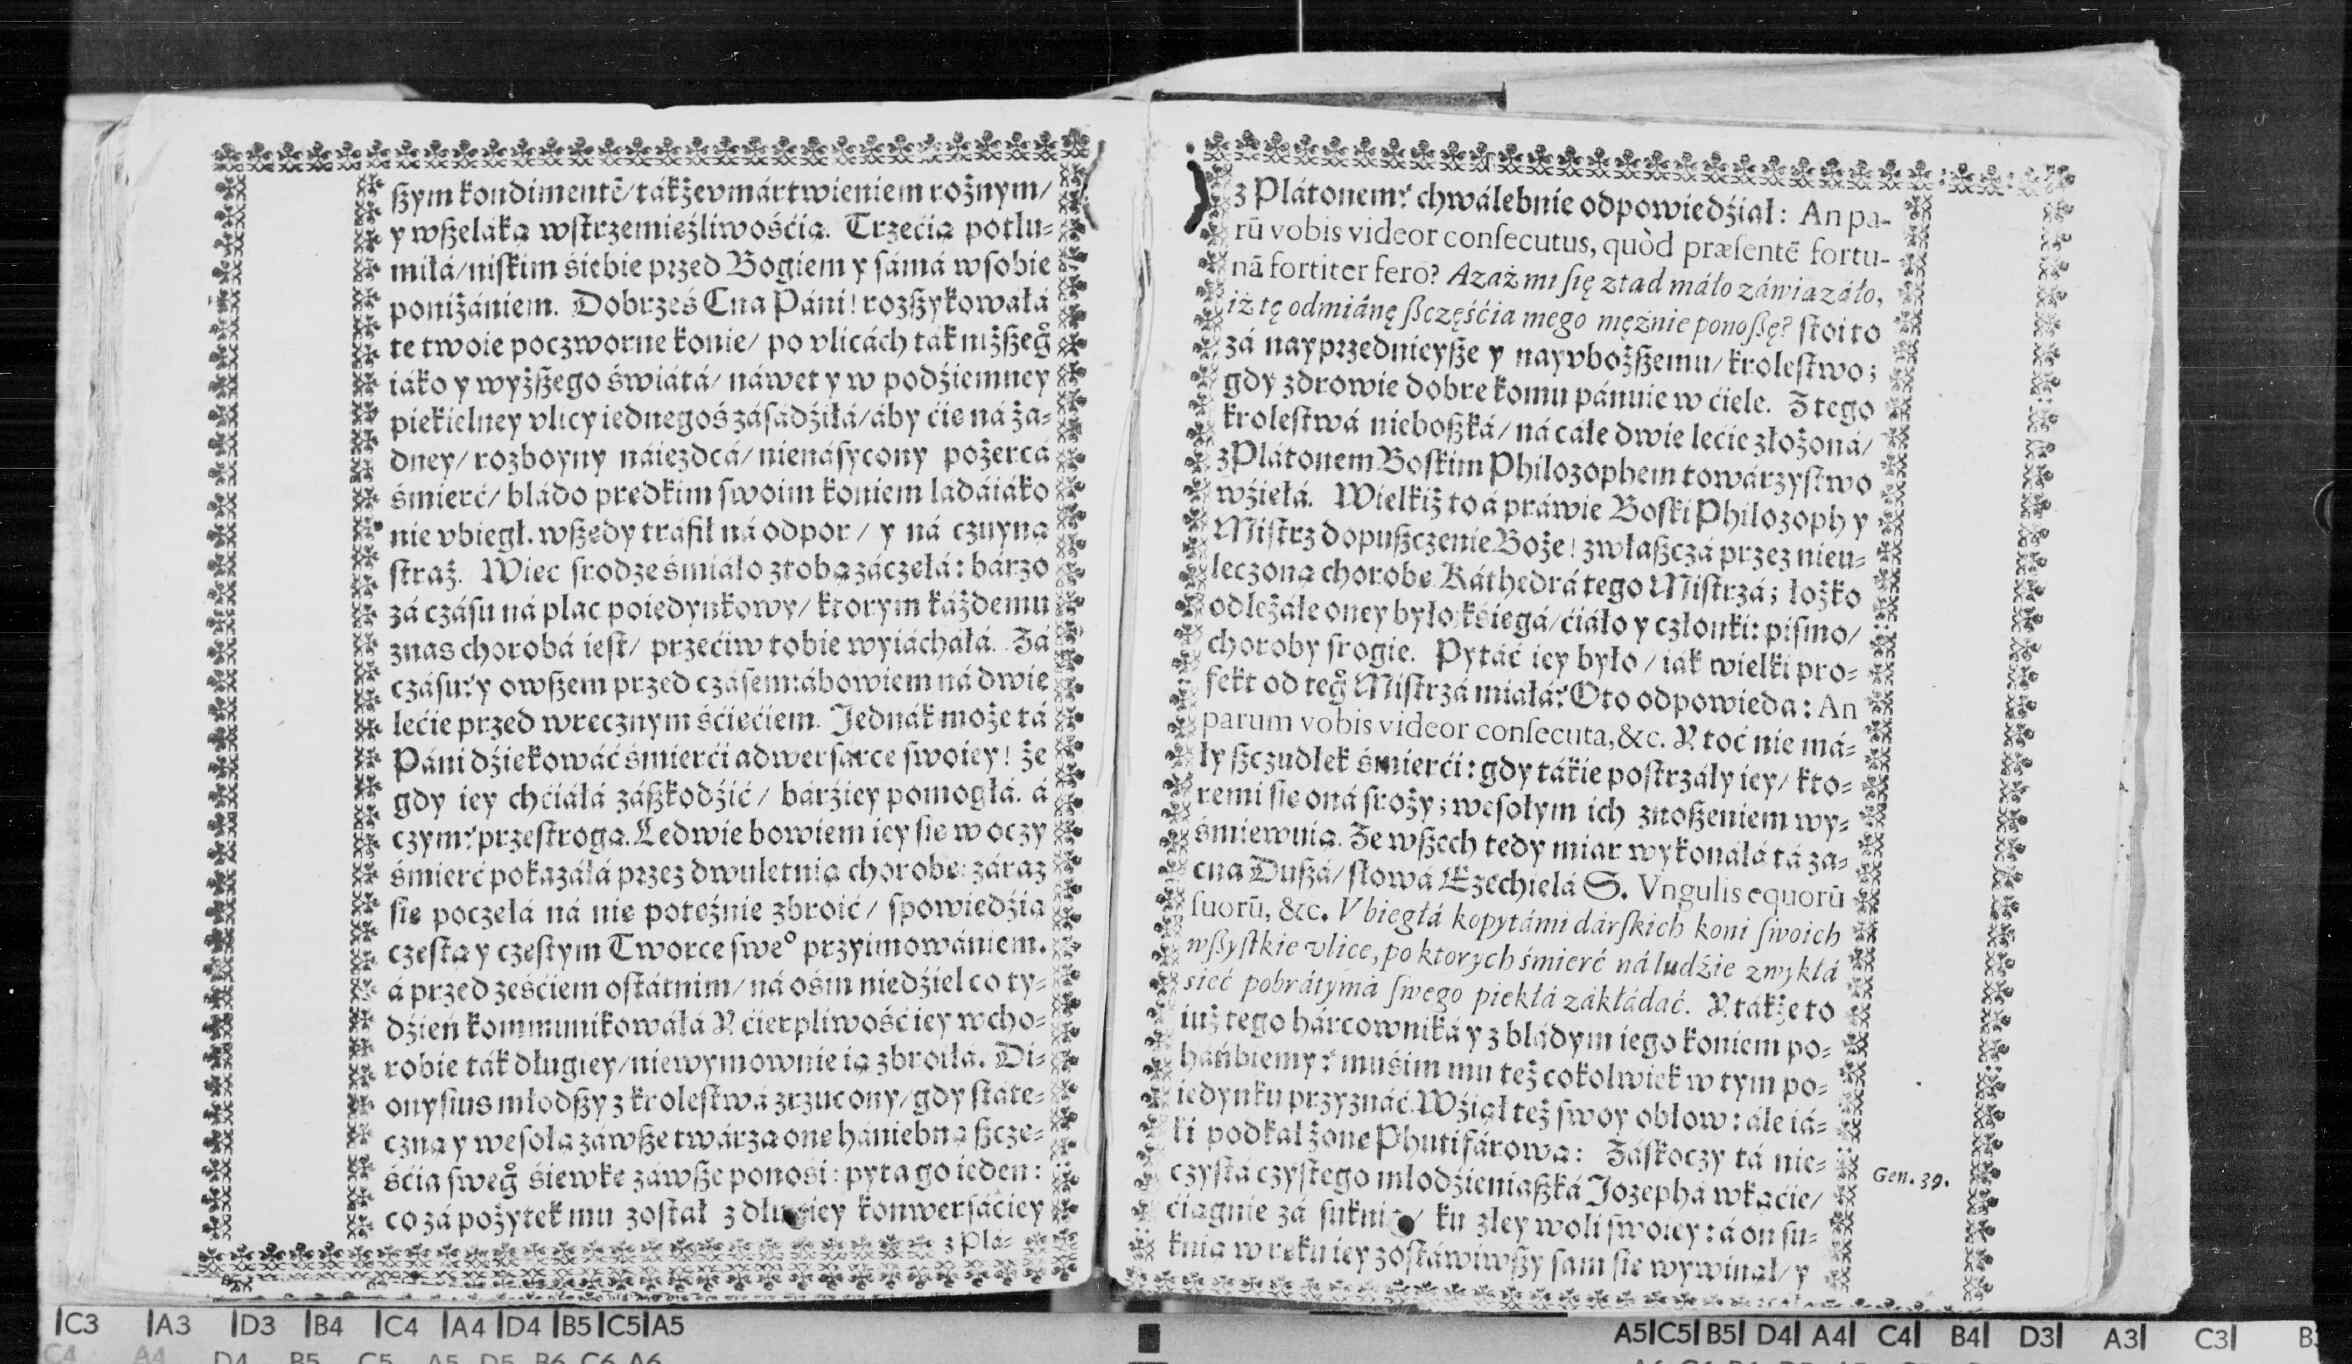 ßym kondimentē/ tákże vmártwieniem rożnym/
y wßeláką wstrzemięźliwośćią. Trzećią potłu-
miłá/ niskim śiebie przed Bogiem y sámá w sobie
poniżániem. Dobrześ Cna Páni! rozßykowáłá
te twoie poczworne konie/ po vlicách ták niżßeg°
iáko y wyżßego świátá/ náwet y w podźiemney
piekielney vlicy iednegoś zásádźiłá/ áby ćię ná ża-
dney/ rozboyny náiezdcá/ nienásycony pożercá
śmierć/ bládo prędkim swoim koniem ládáiáko
nie vbiegł. wßędy tráfił ná odpor/ y ná czuyną
straż. Więc srodze śmiáło z tobą záczęłá: bárzo
zá czásu ná plac poiedynkowy/ ktorym káżdemu
z nas chorobá iest/ przećiw tobie wyiácháłá. Zá
czásu? y owßem przed czásem: ábowiem ná dwie
lećie przed wręcznym śćięćiem. Jednák może tá
Páni dźiękowáć śmierći adwersarce swoiey! że
gdy iey chćiáłá záßkodźić/ bárźiey pomogłá. á
czym? przestrogą. Ledwie bowiem iey się w oczy
śmierć pokazáłá przez dwuletnią chorobę: záraz
się poczęłá ná nię potężnie zbroić/ spowiedźią
częstą y częstym Tworce swe° przyimowániem.
á przed ześćiem ostátnim/ ná ośm niedźiel co ty-
dźień kommunikowáłá. Y ćierpliwość iey w cho-
robie ták długiey/ niewymownie ią zbroiłá. Di-
onysius młodßy z krolestwá zrzucony/ gdy státe-
czną y wesołą záwße twárzą onę hániebną ßczę-
śćia sweg° śiewkę záwße ponosi: pyta go ieden:
co zá pożytek mu został z długiey konwersáciey
z Plá-
z Plátonem? chwálebnie odpowiedźiał: An pa-
rū vobis videor consecutus, quòd præsentē fortu-
nā fortiter fero? Azaż mi się ztąd máło záwiązáło,
iż tę odmiánę ßczęśćia mego mężnie ponoßę? stoi to
zá nayprzednieyße y nayvboższemu/ krolestwo;
gdy zdrowie dobre komu pánuie w ćiele. Z tego
krolestwá nieboßká/ ná cáłe dwie lećie złożoná/
z Plátonem Boskim Philozophem towárzystwo
wźięłá. Wielkiż to á práwie Boski Philozoph y
Mistrz dopußczenie Boże! zwłaßczá przez nieu-
leczoną chorobę. Káthedrá tego Mistrzá; łożko
odleżáłe oney było: kśięgá/ ćiáło y członki: pismo/
choroby srogie. Pytáć iey było/ iák wielki pro-
fekt od teg° Mistrzá miáłá? Oto odpowieda: An
parum vobis videor consecuta, &c. Y toć nie má-
ły ßczudłek śmierći: gdy tákie postrzáły iey/ kto-
remi się oná sroży; wesołym ich znoßeniem wy-
śmiewuią. Ze wßech tedy miar wykonáłá tá za-
cna Dußá/ słowá Ezechielá S. Vngulis equorū
suorū, &c. Vbiegłá kopytámi dárskich koni swoich
wßystkie vlice, po ktorych śmierć ná ludźie zwykłá
sieć pobrátymá swego piekłá zákłádać. Y tákże to
iuż tego hárcowniká y z bládym iego koniem po-
háńbiemy? muśim mu też cokolwiek w tym po-
iedynku przyznáć. Wźiął też swoy obłow: ále iá-
ki podkal żonę Phutifárową: Záskoczy tá nie-
czystá czystego młodźieniaßká Jozephá w kąćie/
ćiągnie zá suknią/ ku złey woli swoiey: á on su-
knią w ręku iey zostáwiwßy sam się wywinął/ y
Gen. 39.